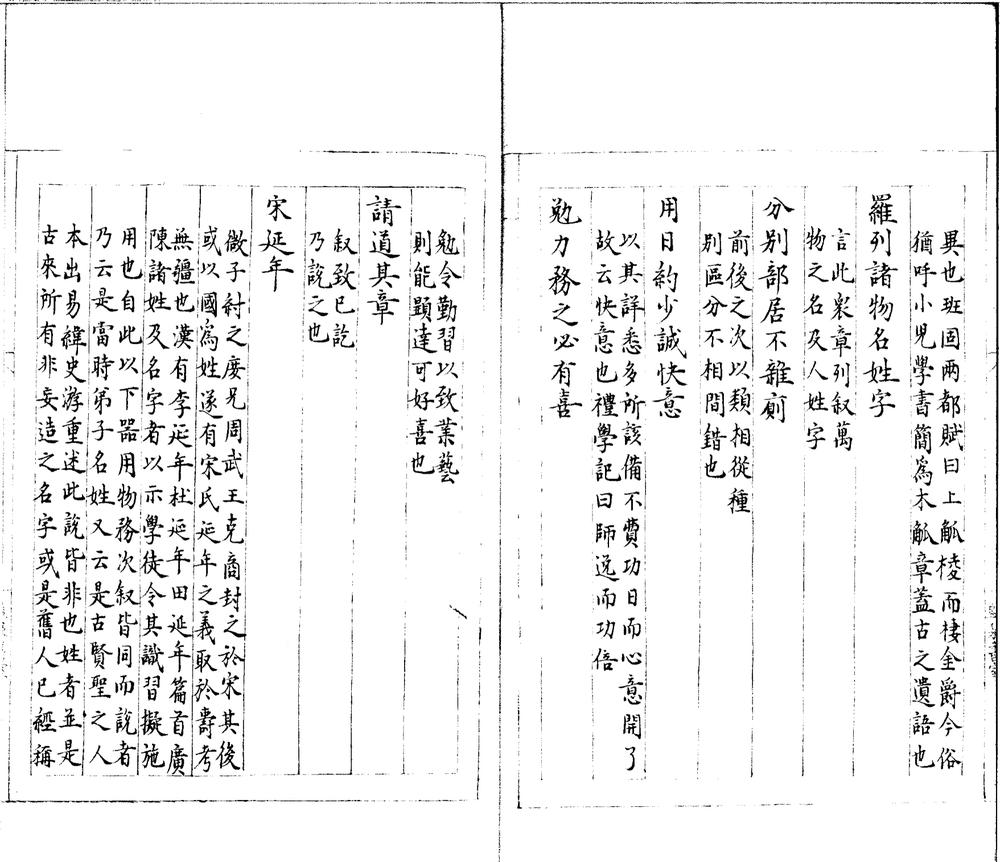 異也班固兩都賦曰上觚棱而棲金爵今俗
猶呼小兒學書簡爲木觚章蓋古之遺語也
羅列諸物名姓字
言此衆章列叙萬
物之名及人姓字
分别部居不雜廁
前後之次以類相從種
别區分不相間錯也
用日約少誠快意
以其詳悉多所該備不費功日而心意開了
故云快意也禮學記曰師逸而功倍
勉力務之必有喜
勉令勤習以致業藝
則能顯達可好喜也
請道其章
叙致已訖
乃説之也
宋延年
微子紂之庶兄周武王克商封之於宋其後
或以國爲姓遂有宋氏延年之義取於壽考
無疆也漢有李延年杜延年田延年篇首廣
陳諸姓及名字者以示學徒令其識習擬施
用也自此以下器用物務次叙皆同而説者
乃云是當時弟子名姓又云是古賢聖之人
本出易緯史游重述此説皆非也姓者並是
古來所有非妄造之名字或是舊人已經稱